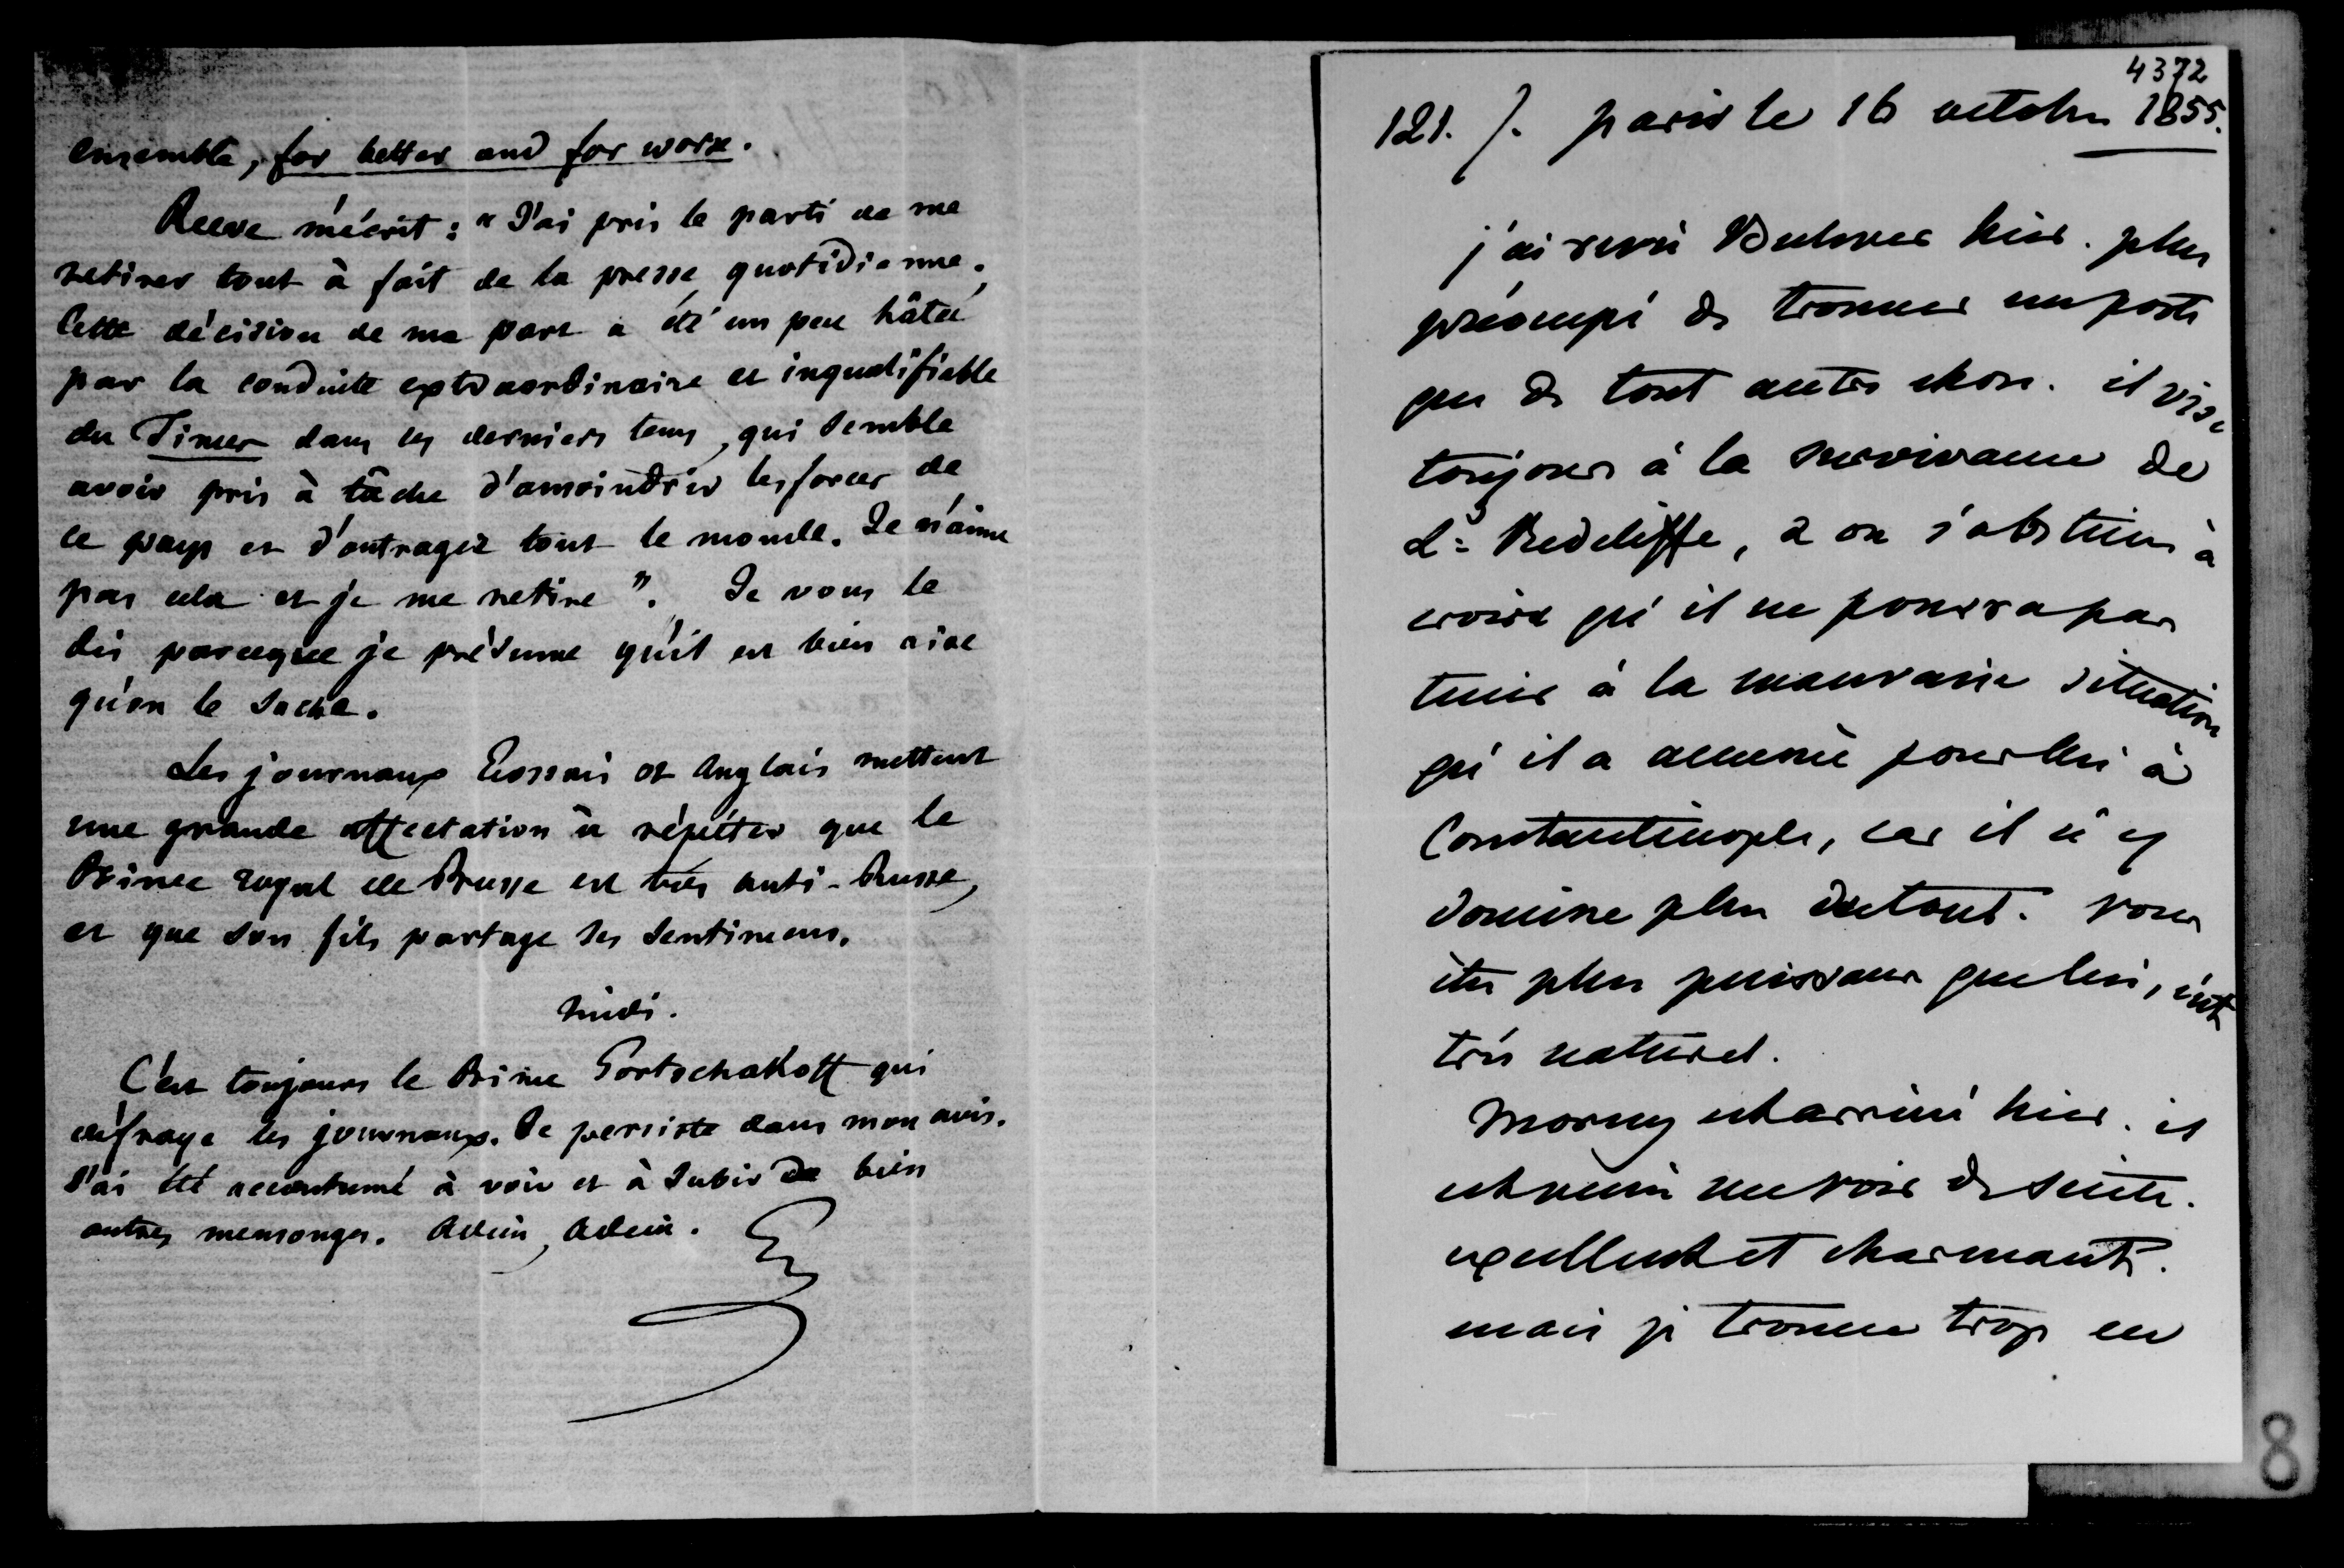 ensemble, for better and for worse.
Reeve m'écrit : "J'ai pris le parti de me
retirer tout à fait de la presse quotidienne.
Cette décision de ma part a été un peu hâtée
par la conduite extraordinaire et inqualifiable
du Times dans les derniers tems, qui semble
avoir pris à tâche d'amoindrir les forces de
ce pays et d'outrager tout le monde. Je n'aime
pas cela et je me retire". Je vous le
dis parceque je présume qu'il est bien aise
qu'on le sache.
Les journaux Ecossais et Anglais mettent
une grande affectation à répéter que le
Prince royal de Prusse est très anti-Russe,
et que son fils partage ses sentimens.
Midi.
C'est toujours le Prince Gortschakoff qui
défraye les journaux. Je persiste dans mon avis.
J'ai été accoutumé à voir et à subir de bien
autres mensonges. Adieu, Adieu.
4372
121. /. paris le 16 octobre 1855.
j'ai revu Bulwer hier. plus
préoccupé de trouver un poste
que de tout autre chose. il vise
toujours à la survivance de
Ld Redcliffe, & on s'obstine à
croire qu'il ne pourra pas
tenir à la mauvaise situation
qu'il a amenée pour lui à
Constantinople, car il n'y
domine plus du tout. vous
êtes plus puissans que lui, c'est
très naturel.
Morny est arrivé hier. il
est venu me voir de suite.
excellent et charmant.
mais je trouve trop en
8